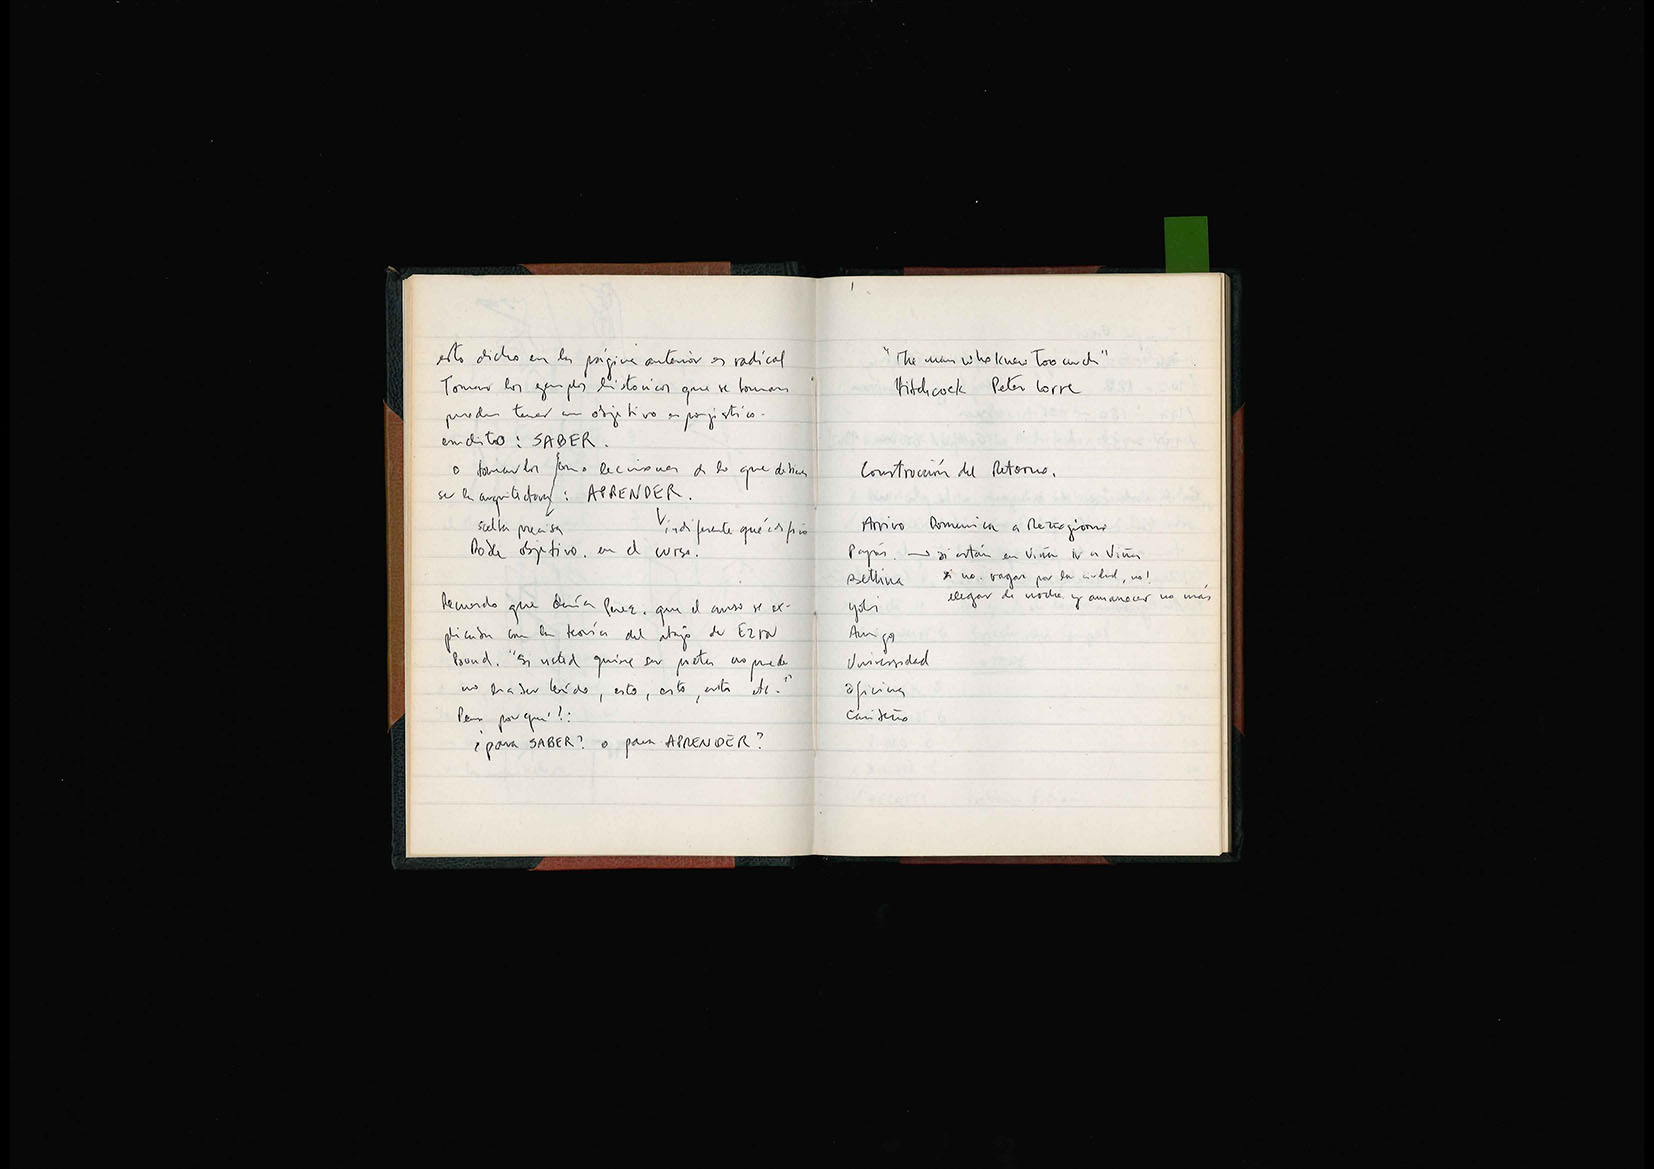 esto dicho en la página anterior es radical
Tomar los ejemplos históricos que se toman
pueden tener un objetivo
erudito: SABER.
o tomarlos como lecciones de lo que debiera
ser la arquitectura: APRENDER.
scelta precisa indiferente qué edificio
Doble objetivo. en el curso.
Recuerdo que decía Perez. que el curso se ex-
plicaba con la teoría del atajo de EZRA
Pound. "Si usted quiere ser poeta no puede
no haber leído, esto, esto, esto etc."
Pero porqué?:
¿para SABER? o para APRENDER?
"The man who knew Too much"
Hitchcock Peter Lorre
Construcción del Retorno.
Arrivo Domenica a Mezzogiorno
Papás. → si están en Viña ir a Viña
Bettina si no. vagar por la ciudad, no!
Yobi llegar de noche y amanecer no más
Amigos
Universidad
oficina
Cariteño